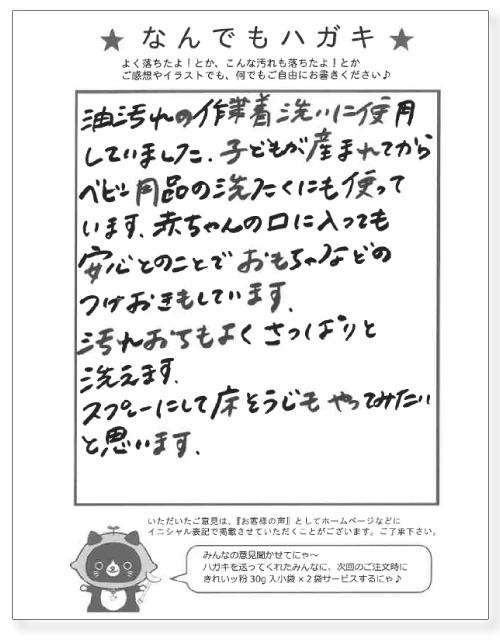 ★ なんでもハガキ ★
よく落ちたよ！とか、こんな汚れも落ちたよ！とか
ご感想やイラストでも、何でもご自由にお書きください♪
油汚れの作業着洗いに使用
していました。子どもが産まれてから
ベビー用品の洗たくにも使って
います。赤ちゃんの口に入っても
安心とのことで おもちゃなどの
つけおきもしています。
汚れおちもよく さっぱりと
洗えます。
スプレーにして床そうじも やってみたい
と思います。
いただいたご意見は、『お客様の声』としてホームページなどに
イニシャル表記で掲載させていただくことがございます。ご了承下さい。
みんなの意見聞かせてにゃ〜
ハガキを送ってくれたみんなに、次回のご注文時に
きれいッ粉 30g 入小袋 × 2 袋サービスするにゃ♪